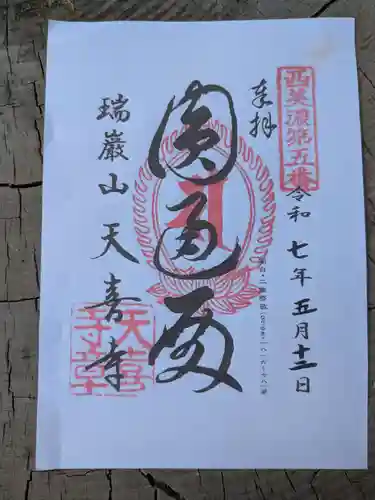 西美濃第五楼
奉拝
令和七年五月十二日
圓通殿
瑞巌山天喜寺
天喜寺章